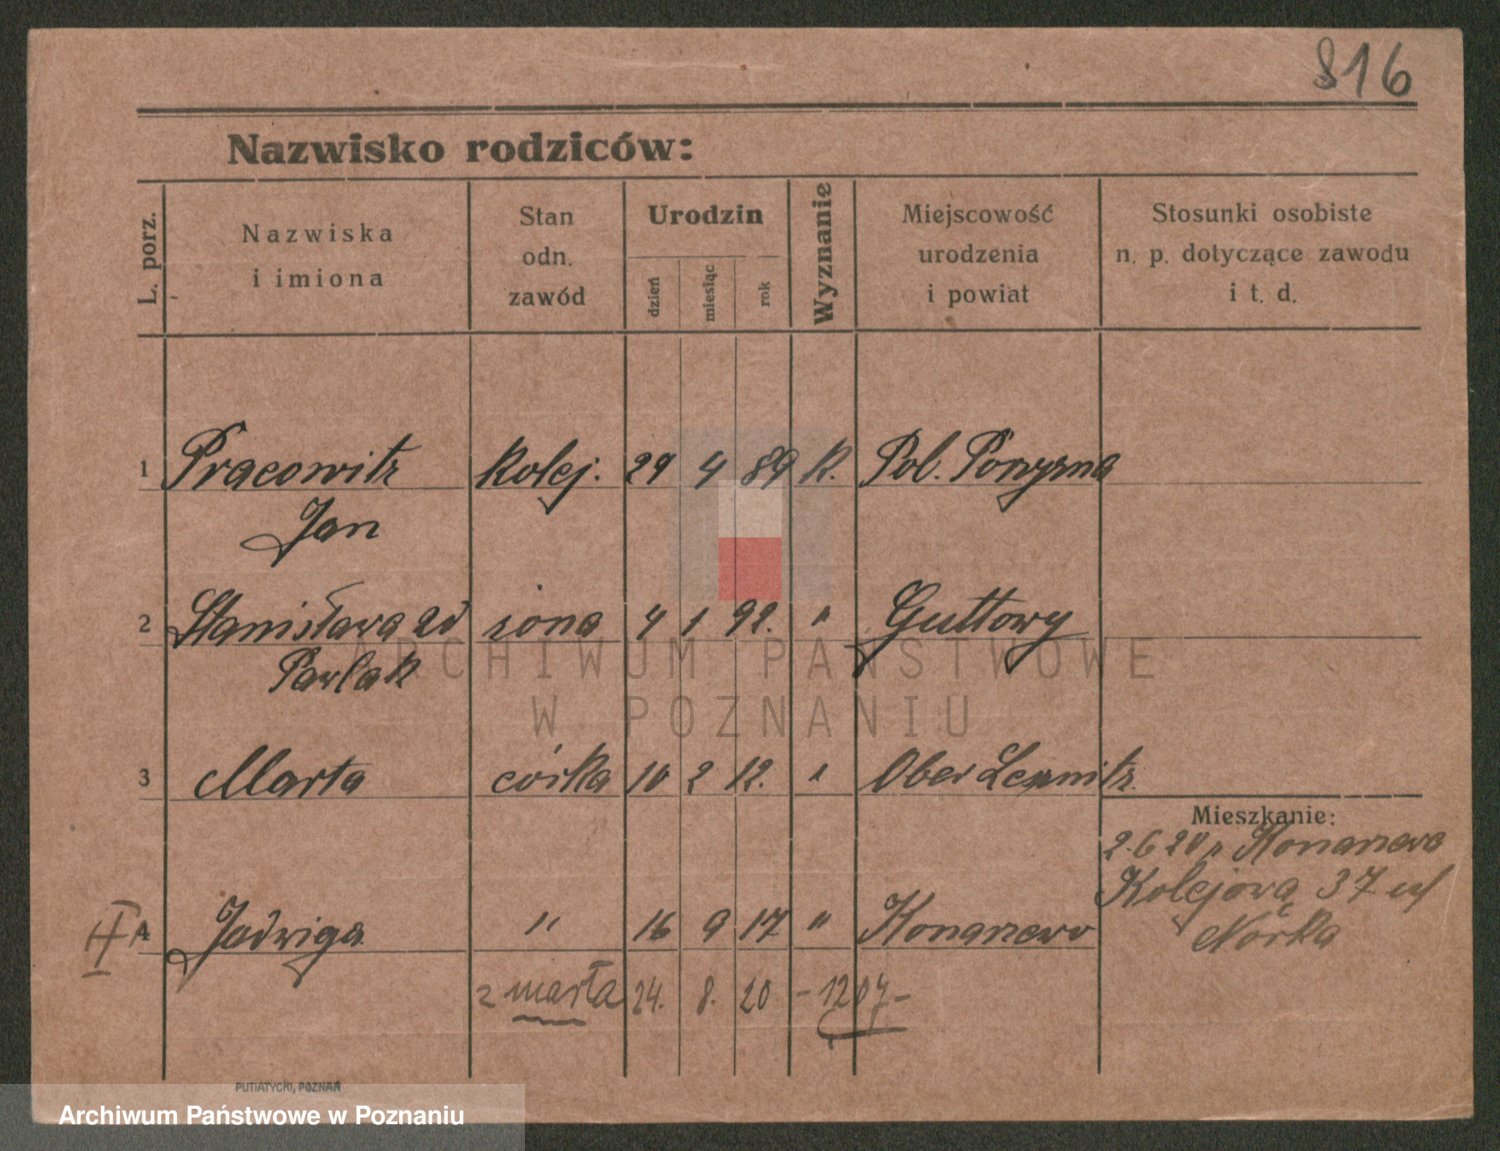 816
Nazwisko rodziców:
L. porz.
Nazwiska
i imiona
Stan
odn.
zawód
Urodzin
dzień
miesiąc
rok
Wyznanie
Miejscowość
urodzenia
i powiat
Stosunki osobiste
n. p. dotyczące zawodu
i t. d.
1 Pracowitz kolej. 29 4 89 K. Pol.
Jan
2 Stanisława zd żona 4 1 92. " Guttowy
Pawlak
3 Marta córka 10 2 12. " Ober
Mieszkanie:
2.6 20 z Konarzewo
Kolejowa 37 u/
Nórka
II 4 Jadwiga " 16 9 17 " Konarzewo
zmarła 24. 8. 20 - 1207 -
PUTIATYCKI, POZNAŃ
ARCHIWUM PAŃSTWOWE
W POZNANIU
Archiwum Państwowe w Poznaniu